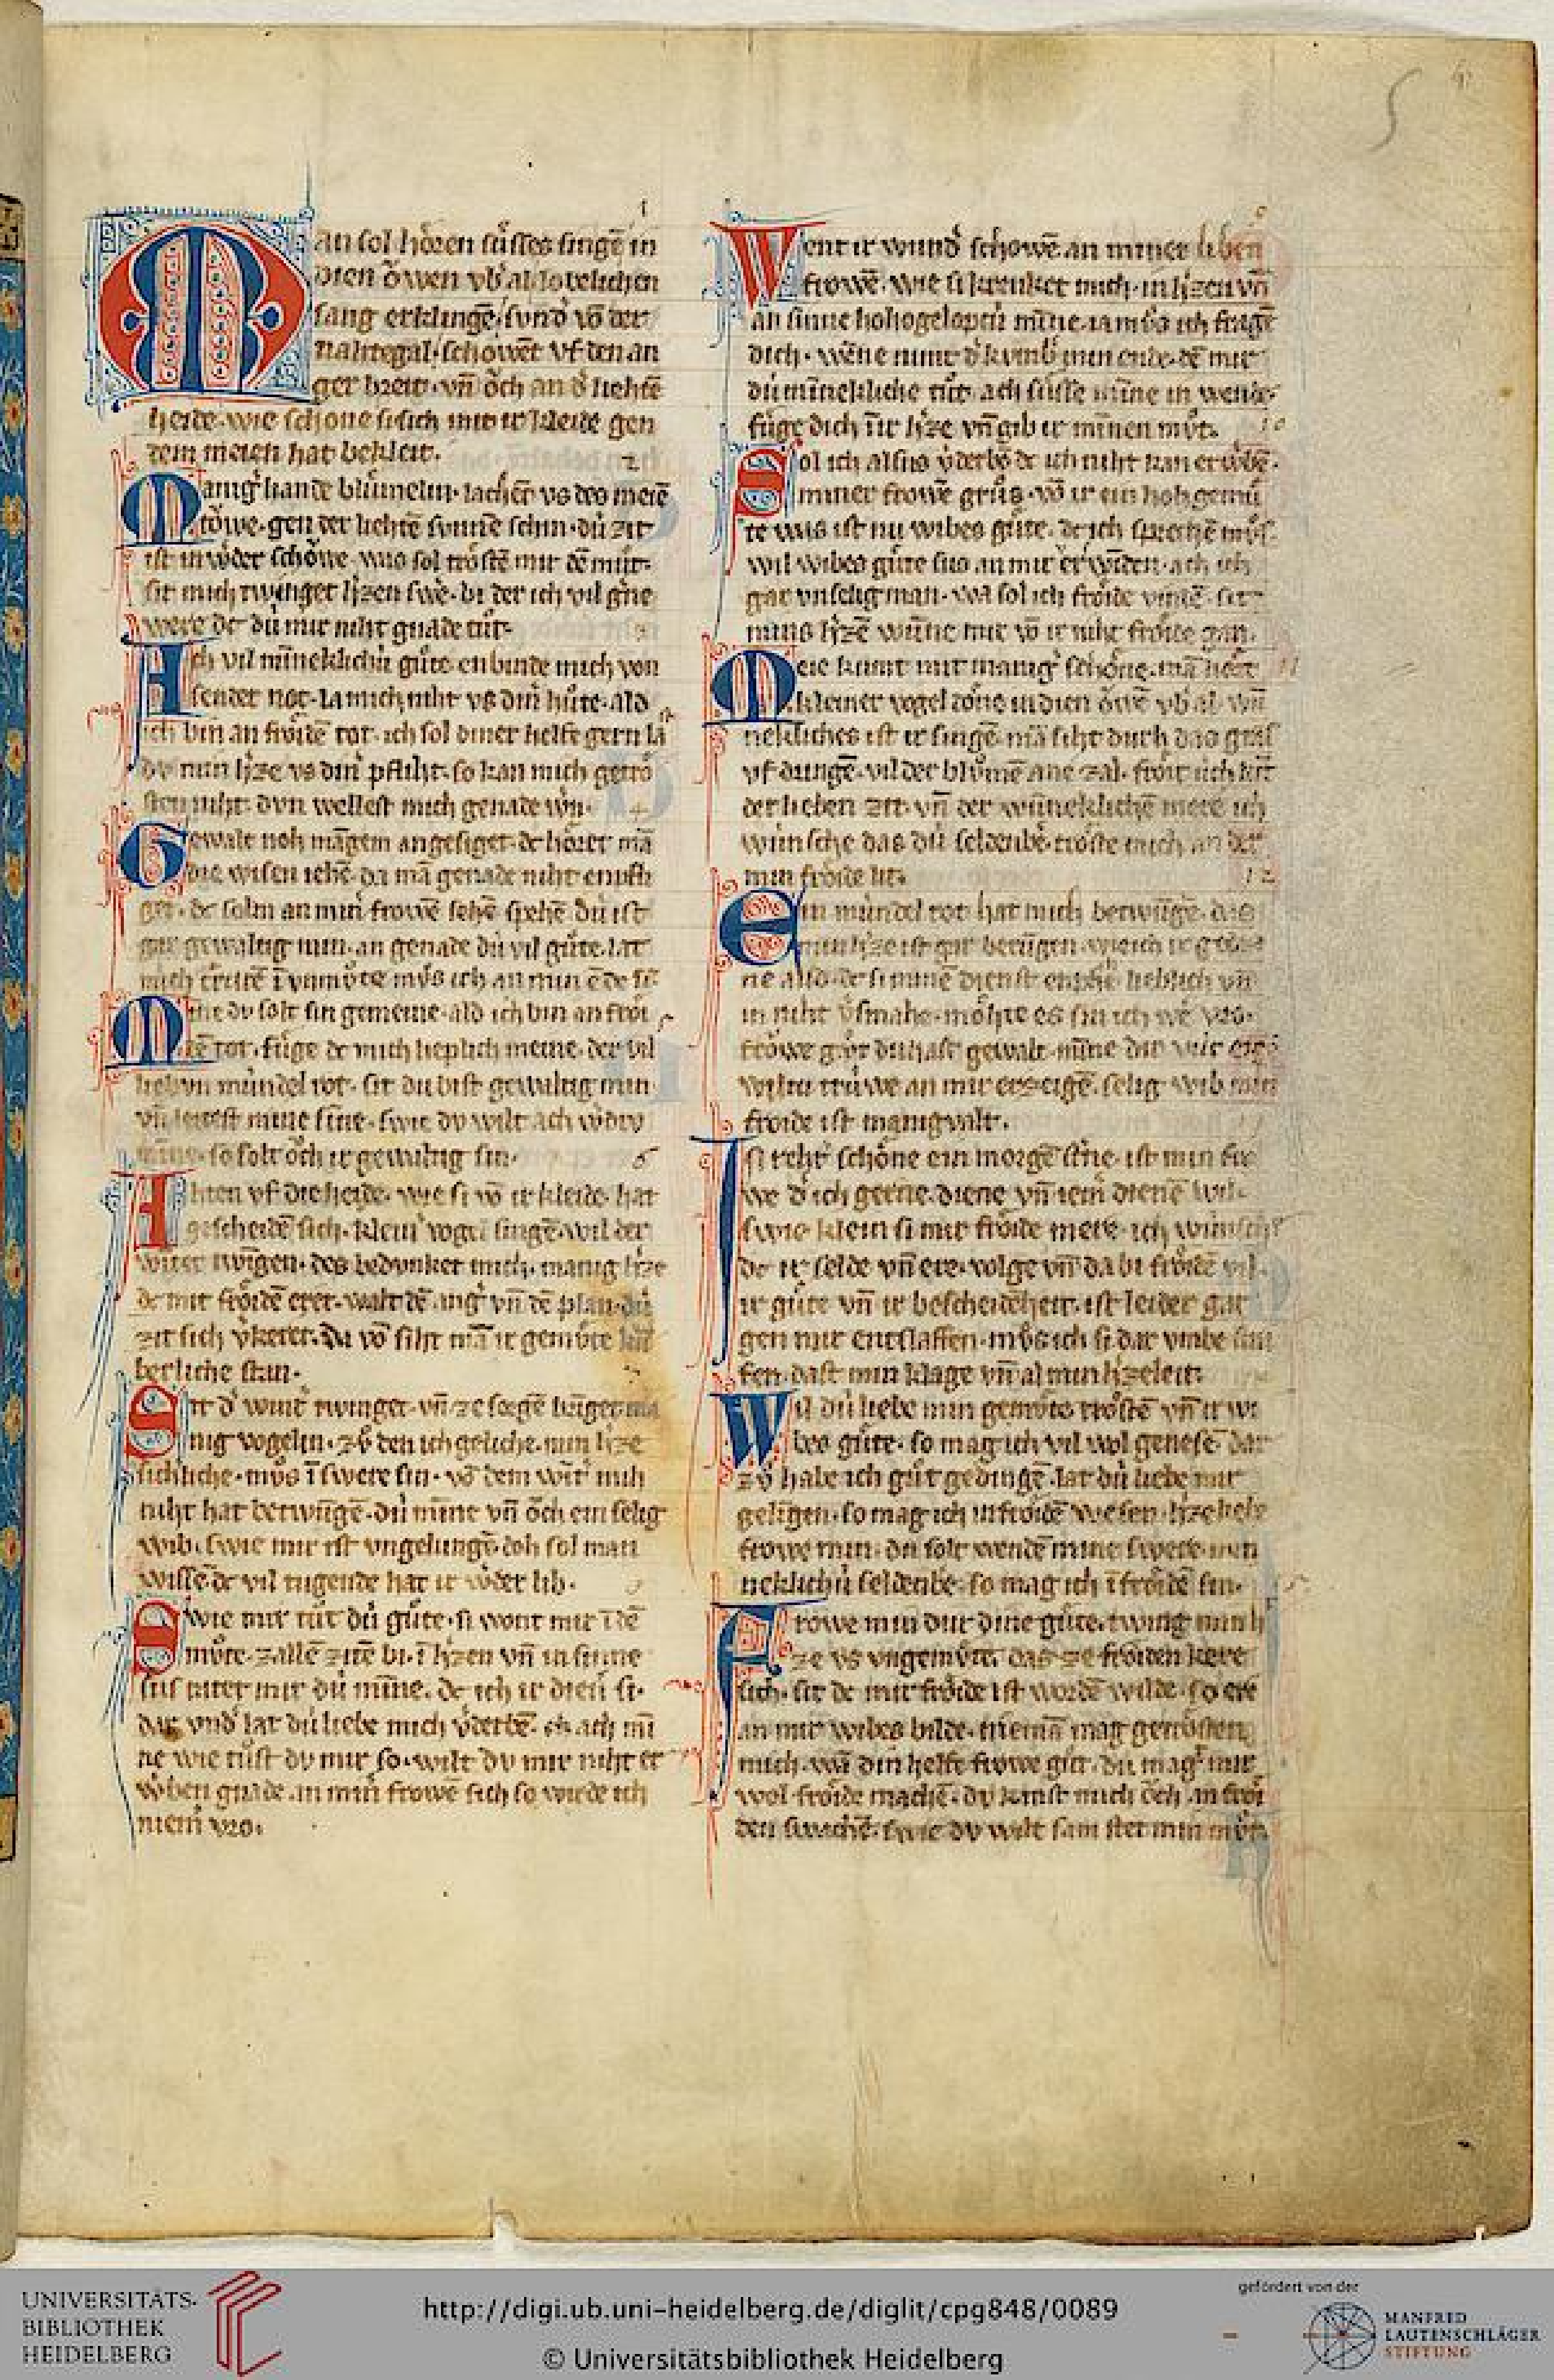 Man sol hoͤren suͤsses singē in
dien oͤwen vb'al lobelichen
sang erklingē sund' vō der
nahtegal schowēt vf den an
ger breit vn̄ oͤch an d' liehtē
heide wie schone si sich mit ir kleide gen
dem meien hat bekleit.
Manig' hande bluͤmelin lachēt vs des meiē
toͤwe gen der liehtē sunnē schin dú zit
ist in w'der schoͤwe was sol troͤstē mir dē muͦt
sit mich twinget h'zen swe bi der ich vil g'ne
were dc dú mir niht gnade tuͦt
Ach vil minneklichú guͤte enbinde mich von
sender not la mich niht vs din' huͦte ald
ich bin an froͤidē tot ich sol diner helfe gern la
dv min h'ze vs din' pfliht so kan mich getroͤ
sten niht dvn wellest mich genade w'n
Gewalt noh māgem angesiget dc hoͤret mā
die wisen iehē da mā genade niht enpfli
get dc soln an min' frowē sehē spehē dú ist
gar gewaltig min an genade dú vil guͤte lat
mich
Minne dv solt sin gemeine ald ich bin an froͤi
dē tot fuͤge dc mich lieplich meine der vil
liebvn múndel rot sit du bist gewaltig min
vn̄ leitest mine sinne swie dv wilt ach w'dv
minne so solt oͤch ir gewaltig sin
Ahten vf die heide wie si vō ir kleide hat
gescheidē sich klein' vogel singē wil der
winter twīgen des bedvnket mich manig h'ze
dc mit froͤidē eret walt dē ang' vn̄ dē plan dú
zit sich v'keret da vō siht mā ir gemuͤte kū
berliche stan.
Sit d' wint' twinget vn̄ ze sorgē bringet ma
nig vogelin zuͦ den ich geliche min h'ze
sichliche muͦs ī swere sin vō dem wint' mih
niht hat betwūgē dú minne vn̄ oͤch ein selig
wib swie mir ist vngelungē doh sol man
wissē dc vil tugende hat ir w'der lib.
Swie mir tuͦt dú guͤte si wont mir ī dē
muͦte zallē zitē bi ī h'zen vn̄ in sinne
sus ratet mir dú minne dc ich ir dien' si
dar vnd' lat dú liebe mich v'derbē ach min
ne wie tuͦst dv mir so wilt dv mir niht er
w'ben gnade an min' frowē sich so wirde ich
niem' vro.
Went ir wund' schowē an miner lieben
frowē wie si krenket mich in h'zen vn̄
an sinne hohgelopti minne iamb's ich fragē
dich wēne nimt d' kumb' min ende dē mir
dú minnekliche tuͦt ach suͤsse minne in wende
fuͤge dich in ir h'ze vn̄ gib ir minnen muͦt.
Sol ich alsus v'derbē dc ich niht kan erw'bē
miner frowē gruͦs vō ir ein hohgemuͤ
te was ist nu wibes guͤte dc ich sprechē muͦs
wil wibes guͤte sus an mir erwindē ach ich
gar vnselig man wa sol ich froͤide vindē sit
mins h'zē wunne mir vō ir niht froͤide gan.
Meie kumt mit manig' schoͤne mā hoͤrt
kleiner vogel doͤne in dien oͤwē vb'al wū
nekliches ist ir singē mā siht durh das gras
vf dringē vil der bluͦmē ane zal froͤit úch
der lieben zit vn̄ der wunneklichē mere ich
wúnsche das dú seldenbe' troͤste mich an der
min froͤide lit.
Ein múndel rot hat mich betwungē das
min h'ze ist gar betūgen wie ich ir gedie
ne also dc si minē dienst enphahe lieblich vn̄
in niht v'smahe moͤhte es sin ich w' vro
frowe guͦt du hast gewalt minne dir
wiltu trúwe an mir erzeigē selig wib min
froide ist manigvalt.
Ist reht' schoͤne ein morgē st'ne ist min fro
we d' ich gerne diene vn̄ iem' dienē wil
swie klein si mir froͤide mere ich wúnsche
dc ir selde vn̄ ere volge vn̄ da bi froͤidē vil
ir guͤte vn̄ ir bescheidēheit ist leider gar
gen mir entslaffen muͦs ich si dar vmbe stra
fen dast min klage vn̄ al min h'zeleit
Wil dú liebe min gemuͤte troͤstē vn̄ ir wi
bes guͤte so mag ich vil wol genesē dar
zuͦ habe ich guͦt gedingē lat dú liebe mir
gelīgen so mag ich in froͤidē wesen h'ze liebe
frowe min du solt wendē mine swere min
neklichú seldenbe' so mag ich ī froͤidē sin.
Frowe min dur dine guͤte twing min h'
ze vs vngemuͤte das ze froͤiden kere
sich sit dc mir froͤide ist wordē wilde so ere
an mir wibes bilde niemā mag getroͤsten
mich wā din helfe frowe guͦt du maht mir
wol froͤide machē dv kanst mich oͤch an froͤi
den swachē swie dv wilt sam stet min muͦt
UNIVERSITÄTS-
BIBLIOTHEK
HEIDELBERG
http://digi.ub.uni-heidelberg.de/diglit/cpg848/0089
© Universitätsbibliothek Heidelberg
gefördert von der
MANFRED
LAUTENSCHLÄGER
STIFTUNG